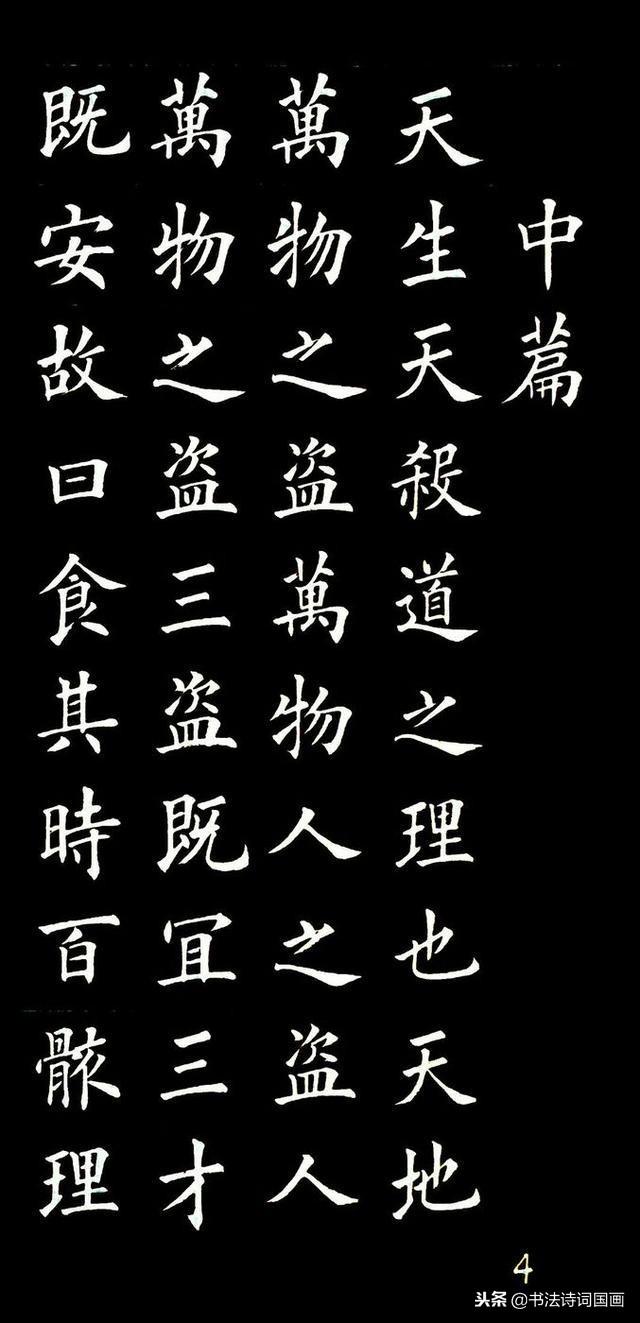 中篇
天生天殺道之理也天地
萬物之盗萬物人之盗人
萬物之盗三盗既冝三才
既安故曰食其時百骸理
4
头条 @书法诗词国画